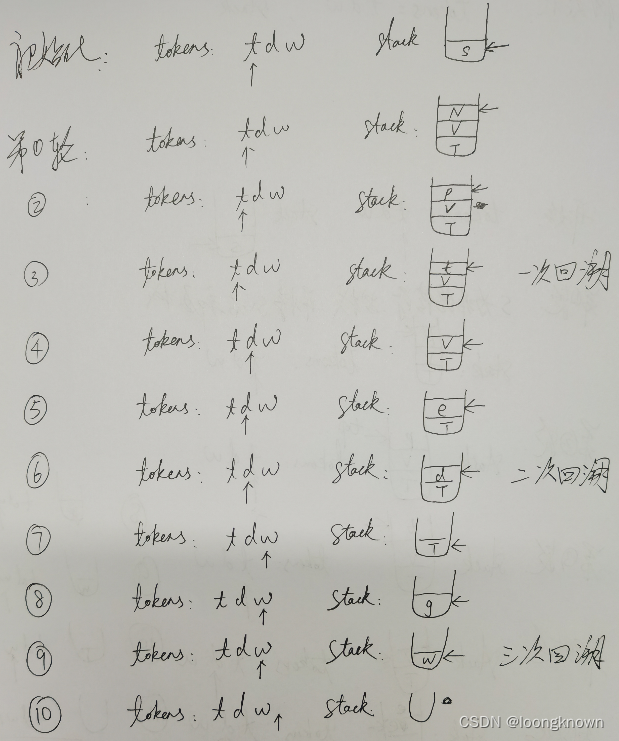 初始化: tokens: t d w stack S
第①轮: tokens: t d w stack: N V T
② tokens: t d w stack: e V T
③ tokens: t d w stack: t V T 一次回溯
④ tokens: t d w stack: V T
⑤ tokens: t d w stack: e T
⑥ tokens: t d w stack: d T 二次回溯
⑦ tokens: t d w stack: T
⑧ tokens: t d w stack: g
⑨ tokens: t d w stack: w 三次回溯
⑩ tokens: t d w stack:
CSDN @loongknown